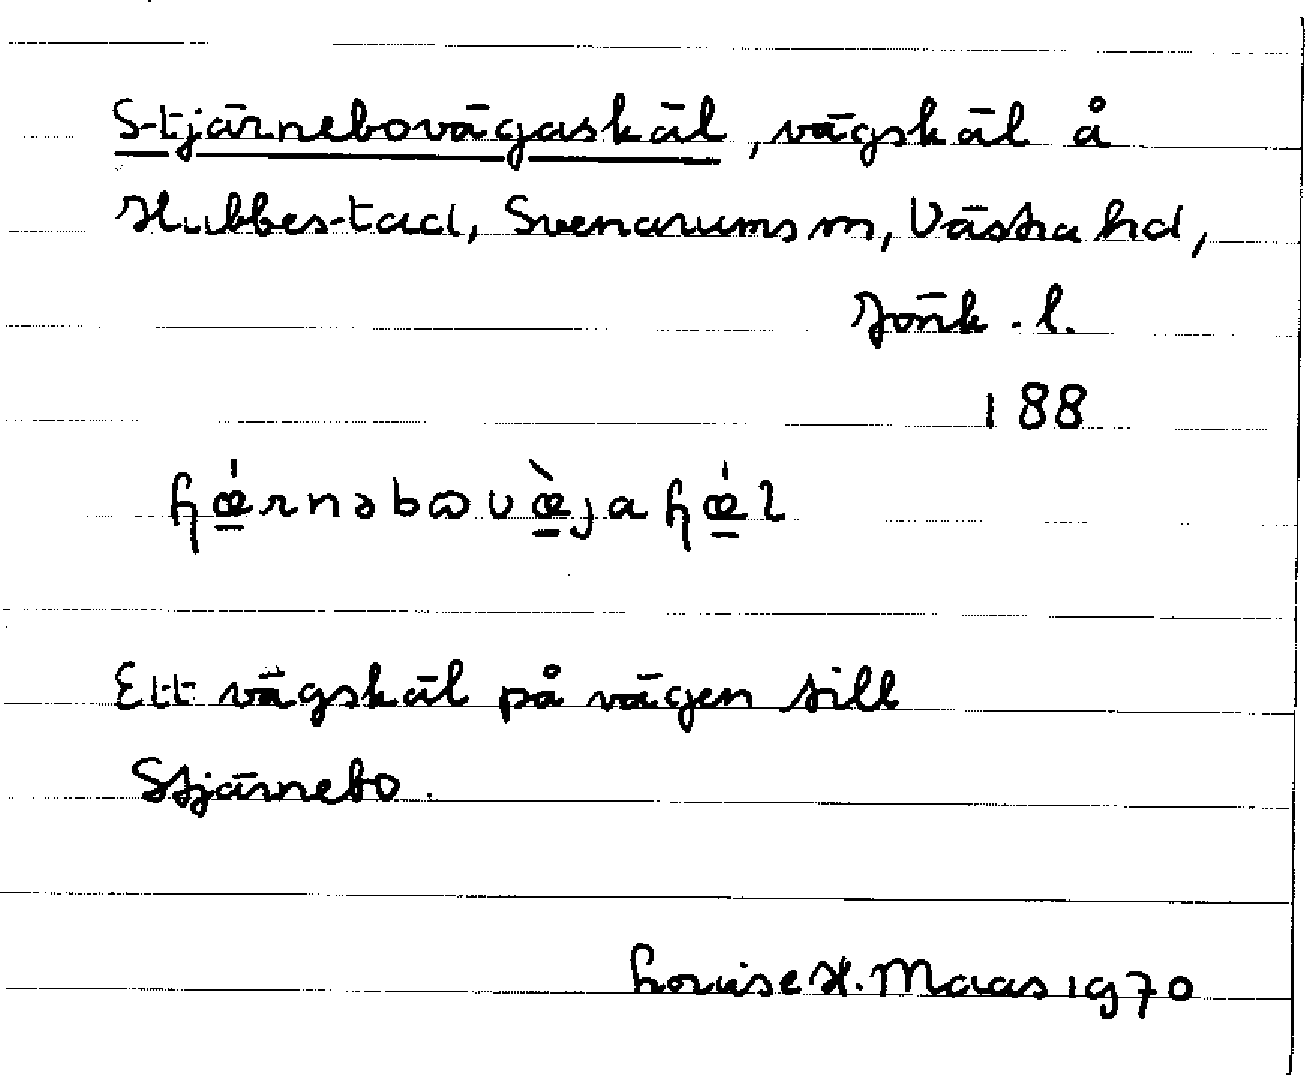 Stjärnebovägaskäl, vägskäl å
Hubbestad, Svenarums sn, Västra hd,
Jönk. l.
188
ɧæ̀rnəbovæ̀jaɧæ̀l
Ett vägskäl på vägen till
Stjärnebo.
Louise H. Maas 1970